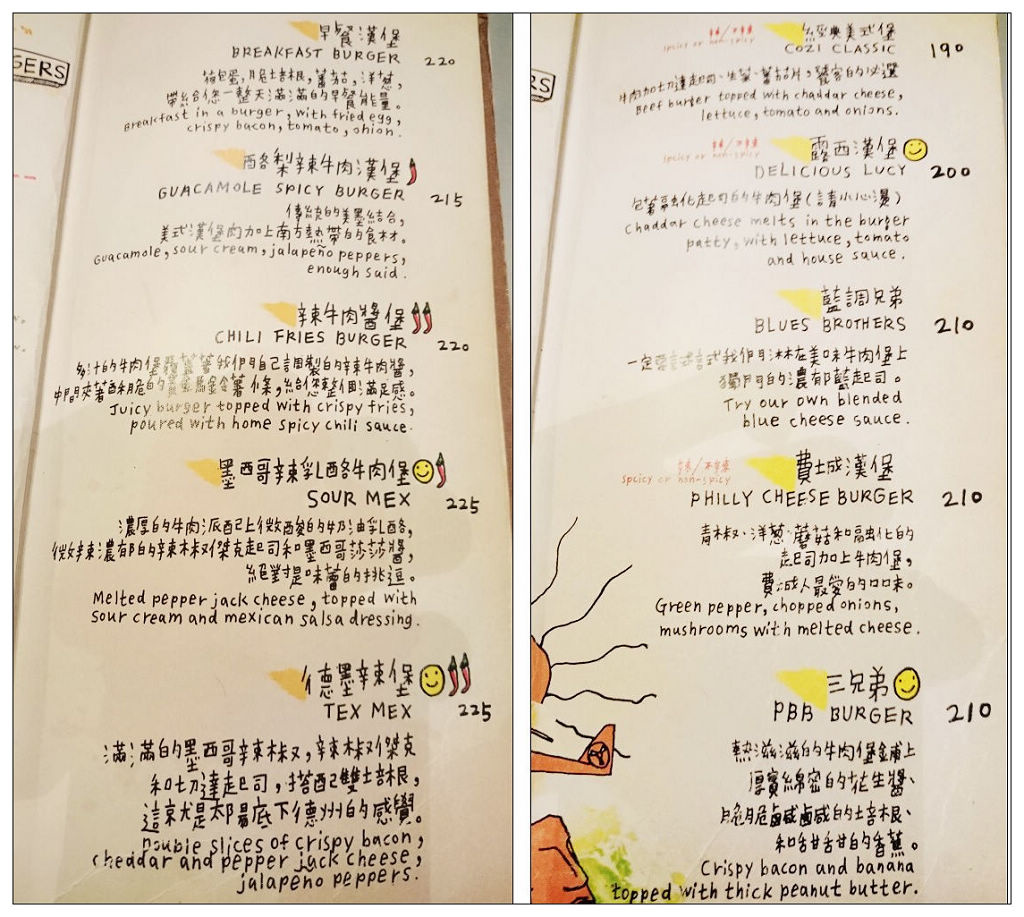 GERS
早餐漢堡
BREAKFAST BURGER 220
荷包蛋,脆培根,蕃茄,洋蔥,
帶給您一整天滿滿的早餐能量。
Breakfast in a burger, with fried egg,
crispy bacon, tomato, onion.
酪梨辣牛肉漢堡
GUACAMOLE SPICY BURGER 215
傳統的美墨結合,
美式漢堡肉加上南方熱帶的食材。
Guacamole, sour cream, jalapeño peppers,
enough said.
辣牛肉醬堡
CHILI FRIES BURGER 220
多汁的牛肉堡覆蓋著我們自己調製的辣牛肉醬,
中間夾著酥脆的黃金馬鈴薯條,給您整個滿足感。
Juicy burger topped with crispy fries,
poured with home spicy chili sauce.
墨西哥辣乳酪牛肉堡
SOUR MEX 225
濃厚的牛肉派配上微酸的牛奶油乳酪,
微辣濃郁的辣椒傑克起司和墨西哥莎莎醬,
絕對是味蕾的挑逗。
Melted pepper jack cheese, topped with
sour cream and mexican salsa dressing.
德墨辣堡
TEX MEX 225
滿滿的墨西哥辣椒,辣椒傑克
和切達起司,搭配雙培根,
這就是太陽底下德州的感覺。
Double slices of crispy bacon,
cheddar and pepper jack cheese,
jalapeno peppers.
RS
辣/不辣
spicy or non-spicy
經典美式堡
COZI CLASSIC 190
牛肉加切達起司、生菜、蕃茄片,饕客的必選
Beef burger topped with chaddar cheese,
lettuce, tomato and onions.
辣/不辣
spicy or non-spicy
露西漢堡
DELICIOUS LUCY 200
包著融化起司的牛肉堡(請小心燙)
Chaddar cheese melts in the burger
patty, with lettuce, tomato
and house sauce.
藍調兄弟
BLUES BROTHERS 210
一定要試試我們淋在美味牛肉堡上
獨門的濃郁藍起司。
Try our own blended
blue cheese sauce.
辣/不辣
Spcicy or non-spicy
費城漢堡
PHILLY CHEESE BURGER 210
青椒、洋蔥、蘑菇和融化的
起司加上牛肉堡,
費城人最愛的口味。
Green pepper, chopped onions,
mushrooms with melted cheese.
三兄弟
PBB BURGER 210
熱滋滋的牛肉堡鋪上
厚實綿密的花生醬、
脆脆鹹鹹的培根、
和甜甜的香蕉。
Crispy bacon and banana
topped with thick peanut butter.